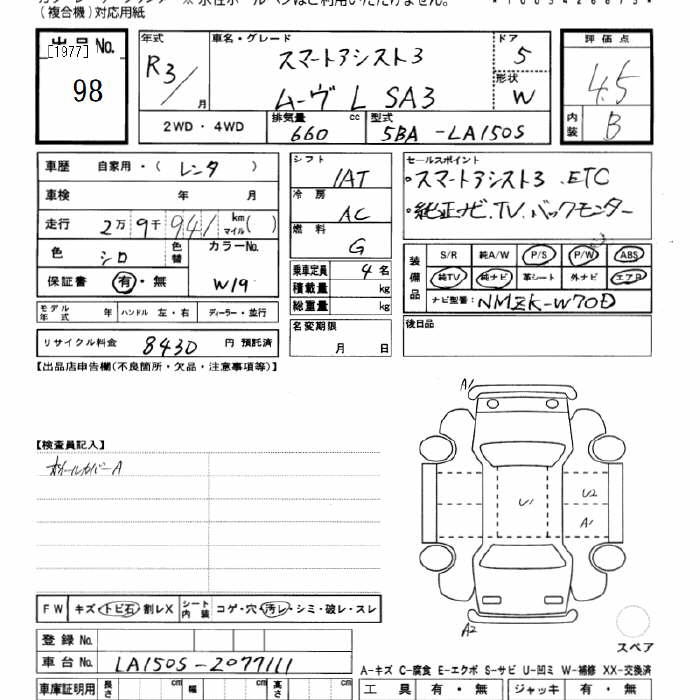 (複合機)対応用紙
出品No.
[1977]
98
年式
R3/
月
車名・グレード
スマートアシスト3
ムーヴ L SA3
ドア
5
形状
W
2WD・4WD
排気量
660
cc
型式
5BA-LA150S
評価点
4.5
内装
B
車歴 自家用・(レンタ)
車検 年 月
走行 2万9千941 km マイル( )
色 シロ
色替
カラーNo.
W19
保証書 有・無
モデル年式 年
ハンドル 左・右
ディーラー・並行
リサイクル料金 8430 円 預託済
シフト
IAT
冷房
AC
燃料
G
乗車定員 4 名
積載量 kg
総重量 kg
名変期限
月 日
セールスポイント
・スマートアシスト3 .ETC
・純正ナビ.TV.バックモニター
装備品
S/R 純A/W P/S P/W ABS
純TV 純ナビ 革シート 外ナビ エアB
ナビ型番: NMZK-W70D
後日品
【出品店申告欄(不良箇所・欠品・注意事項等)】
【検査員記入】
ホイールカバーA
A1
U1
U2
A1
A2
スペア
FW キズ・トビ石・割レX
シート内装 コゲ・穴・汚レ・シミ・破レ・スレ
登録No.
車台No. LA150S-2077111
A-キズ C-腐食 E-エクボ S-サビ U-凹ミ W-補修 XX-交換済
車庫証明用 長さ cm 幅 cm 高さ cm
工具 有・無 ジャッキ 有・無